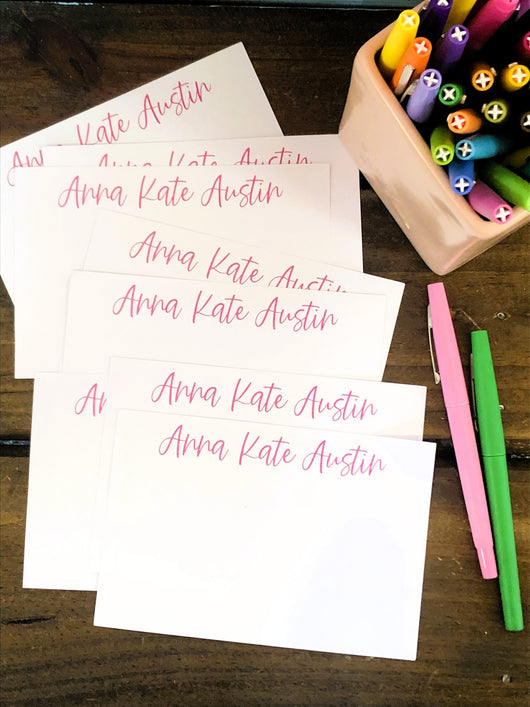 Anna Kate Austin
Anna Kate Austin
Anna Kate Austin
Anna Kate Austin
Anna Kate Austin
Anna Kate Austin
Anna Kate Austin